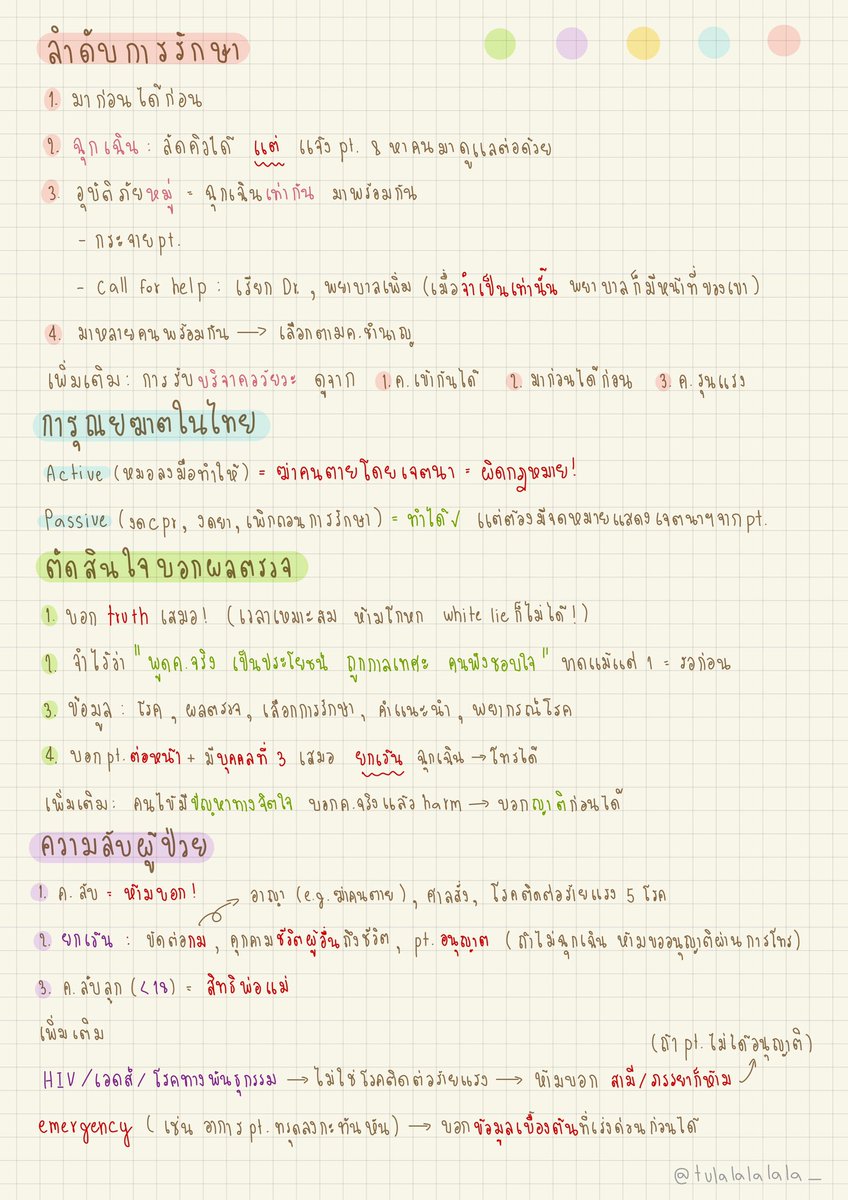 ลำดับการรักษา
1. มาก่อนได้ก่อน
2. ฉุกเฉิน : ลัดคิวได้ แต่ แจ้ง pt. & หาคนมาดูแลต่อด้วย
3. อุบัติภัยหมู่ = ฉุกเฉินเท่ากัน มาพร้อมกัน
- กระจาย pt.
- Call for help : เรียก Dr. , พยาบาลเพิ่ม (เมื่อจำเป็นเท่านั้น พยาบาลก็มีหน้าที่ของเขา)
4. มาหลายคนพร้อมกัน → เลือกตามค.ชำนาญ
เพิ่มเติม : การรับบริจาคอวัยวะ ดูจาก 1. ค.เข้ากันได้ 2. มาก่อนได้ก่อน 3. ค.รุนแรง
การุณยฆาตในไทย
Active (หมอลงมือทำให้) = ฆ่าคนตายโดยเจตนา = ผิดกฎหมาย!
Passive (งดcpr, งดยา, เพิกถอนการรักษา) = ทำได้✓ แต่ต้องมีจดหมายแสดงเจตนาฯจาก pt.
ตัดสินใจบอกผลตรวจ
1. บอก truth เสมอ! (เวลาเหมาะสม ห้ามโกหก white lie ก็ไม่ได้!)
2. จำไว้ว่า "พูดค.จริง เป็นประโยชน์ ถูกกาลเทศะ คนฟังชอบใจ" ขาดแม้แต่ 1 = รอก่อน
3. ข้อมูล : โรค , ผลตรวจ , เลือกการรักษา , คำแนะนำ , พยากรณ์โรค
4. บอก pt. ต่อหน้า + มีบุคคลที่ 3 เสมอ ยกเว้น ฉุกเฉิน → โทรได้
เพิ่มเติม : คนไข้มีปัญหาทางจิตใจ บอกค.จริงแล้ว harm → บอกญาติก่อนได้
ความลับผู้ป่วย
1. ค.ลับ = ห้ามบอก!
อาญา (e.g. ฆ่าคนตาย) , ศาลสั่ง , โรคติดต่อร้ายแรง 5 โรค
2. ยกเว้น : ขัดต่อกม , คุกคามชีวิตผู้อื่นถึงชีวิต , pt. อนุญาต (ถ้าไม่ฉุกเฉิน ห้ามขออนุญาติผ่านการโทร)
3. ค.ลับลูก (<18) = สิทธิพ่อแม่
เพิ่มเติม
(ถ้า pt. ไม่ได้อนุญาติ)
HIV/เอดส์/โรคทางพันธุกรรม → ไม่ใช่โรคติดต่อร้ายแรง → ห้ามบอก สามี/ภรรยาก็ห้าม
emergency (เช่น อาการ pt. ทรุดลงกะทันหัน) → บอกข้อมูลเบื้องต้นที่เร่งด่วนก่อนได้
@tulalalalala_